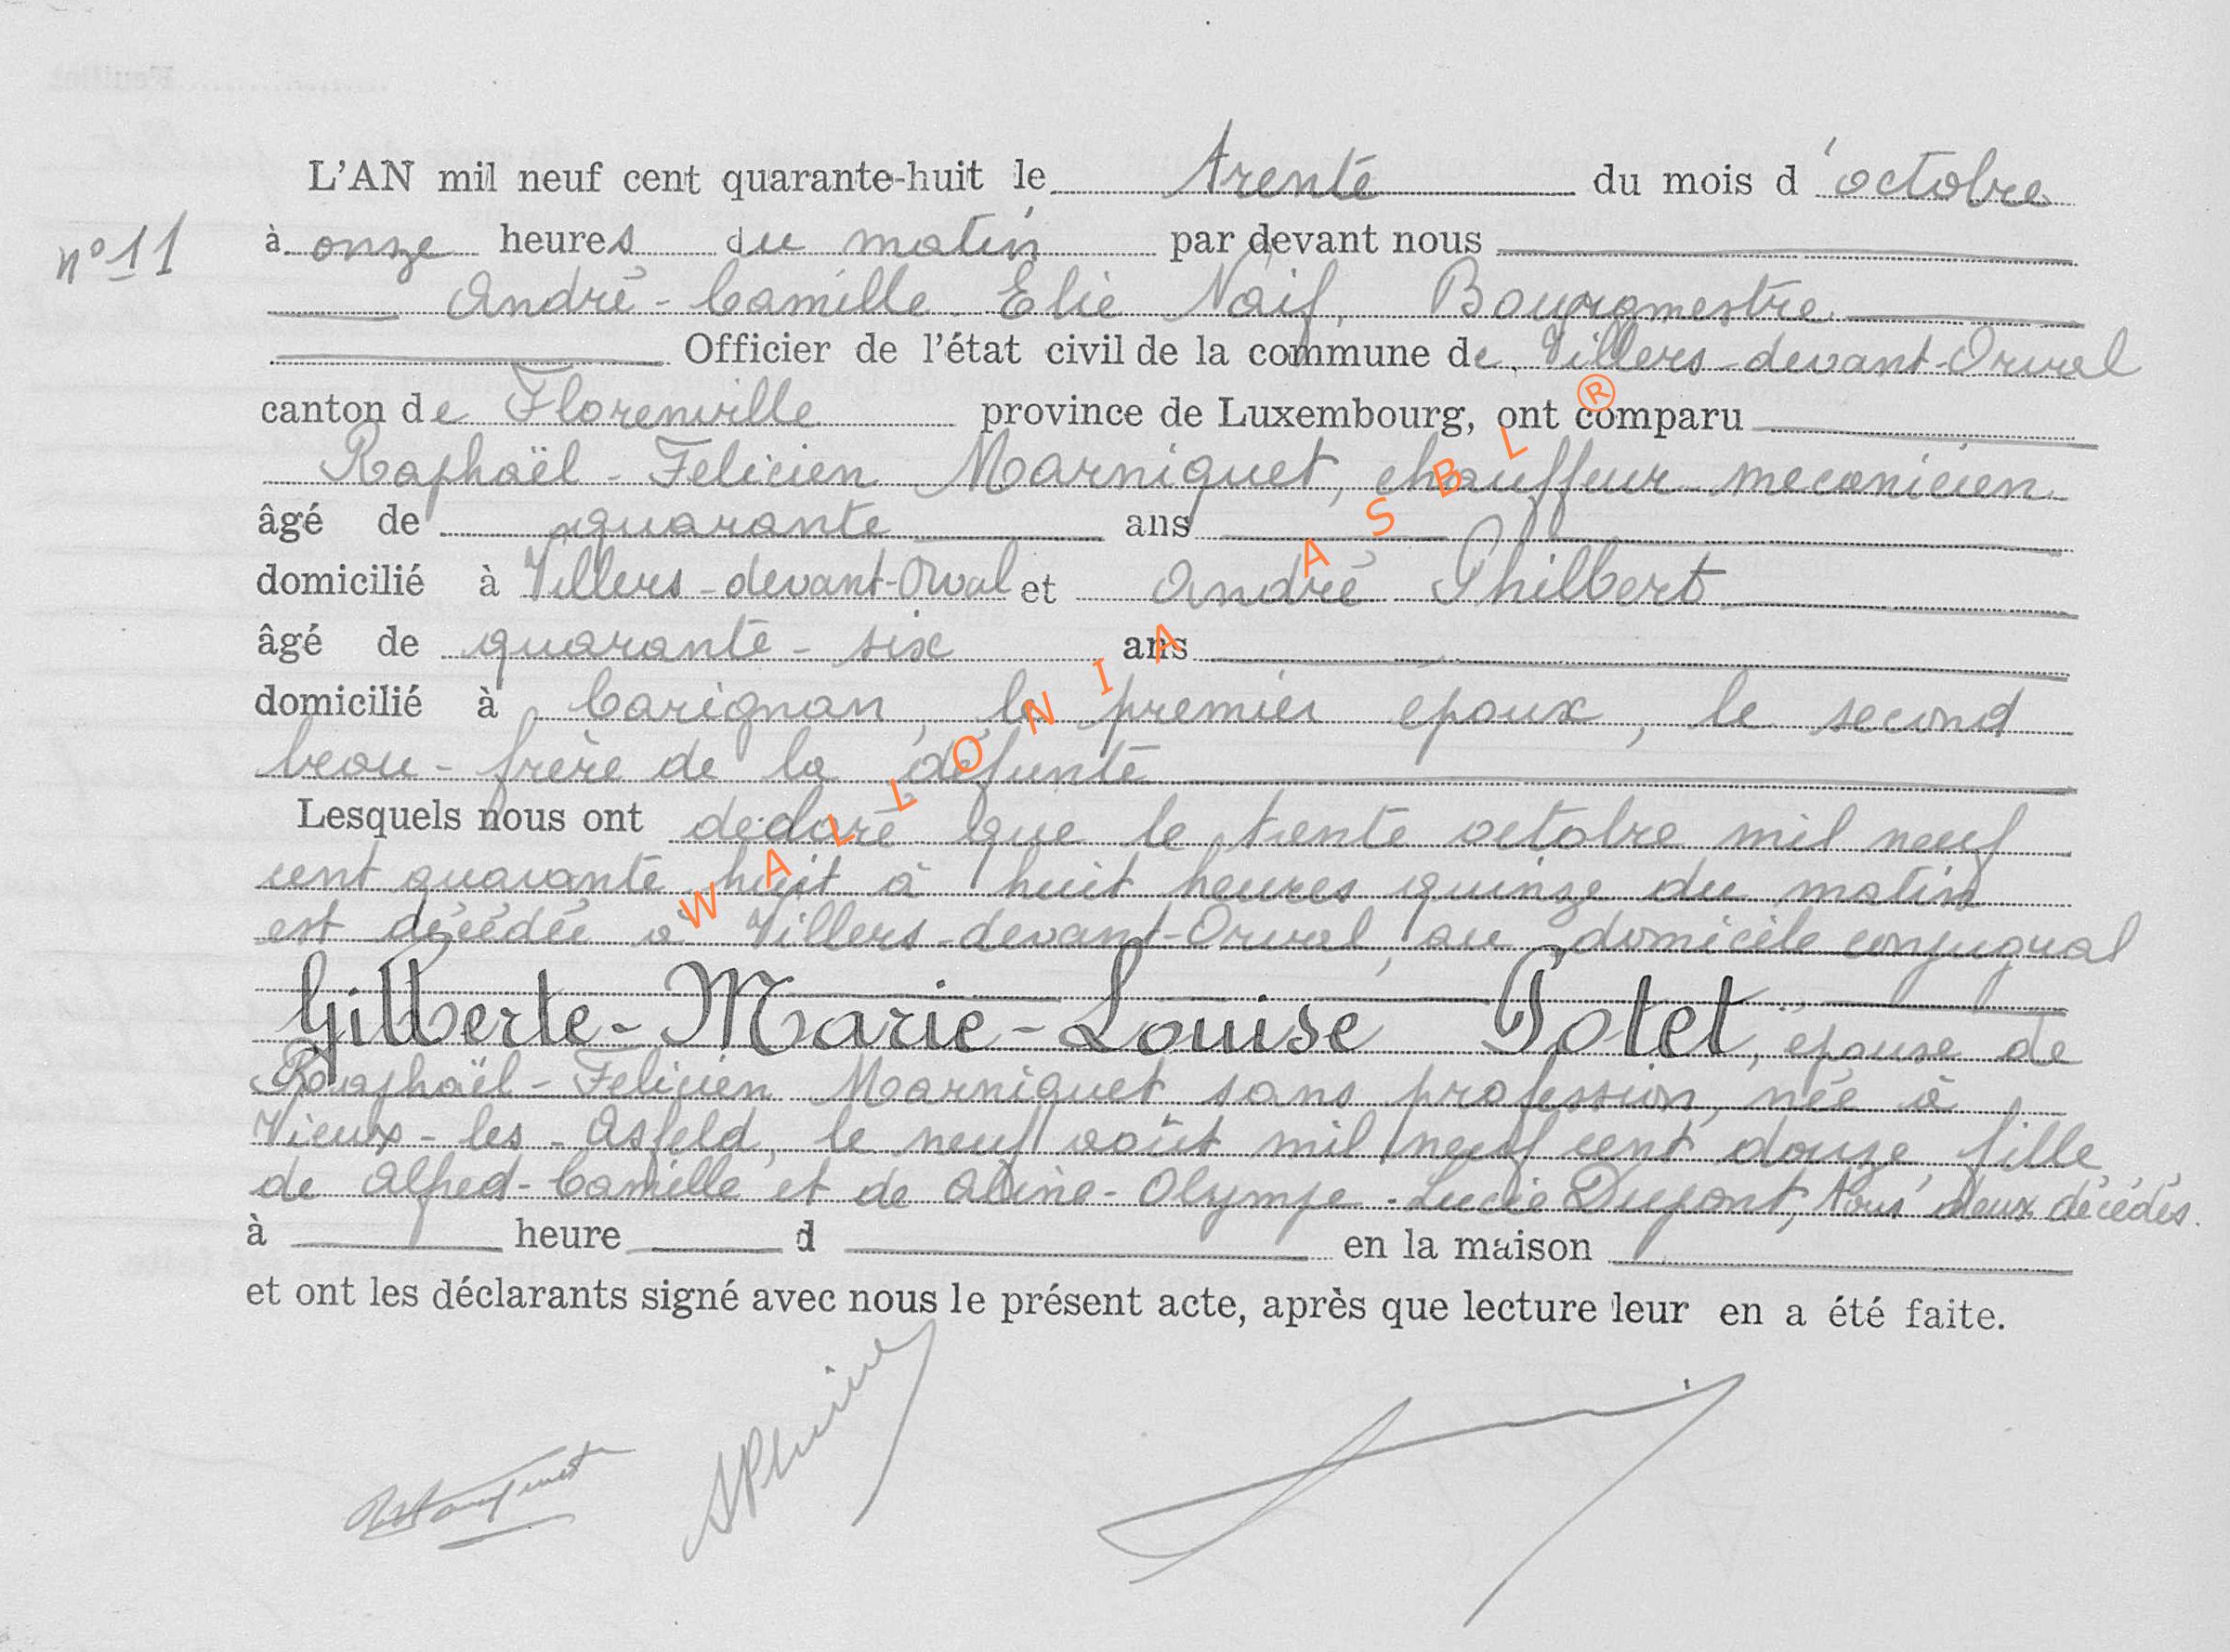 L'AN mil neuf cent quarante-huit le trente du mois d'octobre
n° 11
à onze heures du matin par devant nous
André-Camille Elie Naif, Bourgmestre
Officier de l'état civil de la commune de Villers-devant-Orval
canton de Florenville province de Luxembourg, ont comparu
Raphaël-Felicien Marniquet, chauffeur-mecanicien
âgé de quarante ans
domicilié à Villers-devant-Orval et André Philbert
âgé de quarante-six ans
domicilié à Carignan, le premier époux, le second
beau-frère de la défunte
Lesquels nous ont declaré que le trente octobre mil neuf
cent quarante huit à huit heures quinze du matin
est décédée à Villers-devant-Orval, au domicile conjugual
Gilberte-Marie-Louise Potet, épouse de
Raphaël-Felicien Marniquet sans profession, née à
Vieux-les-Asfeld, le neuf août mil neuf cent douze, fille
de Alfred-Camille et de Aline-Olympe-Lucie Dupont, tous deux décédés.
à heure d en la maison
et ont les déclarants signé avec nous le présent acte, après que lecture leur en a été faite.
WALLONIA ASBL ®